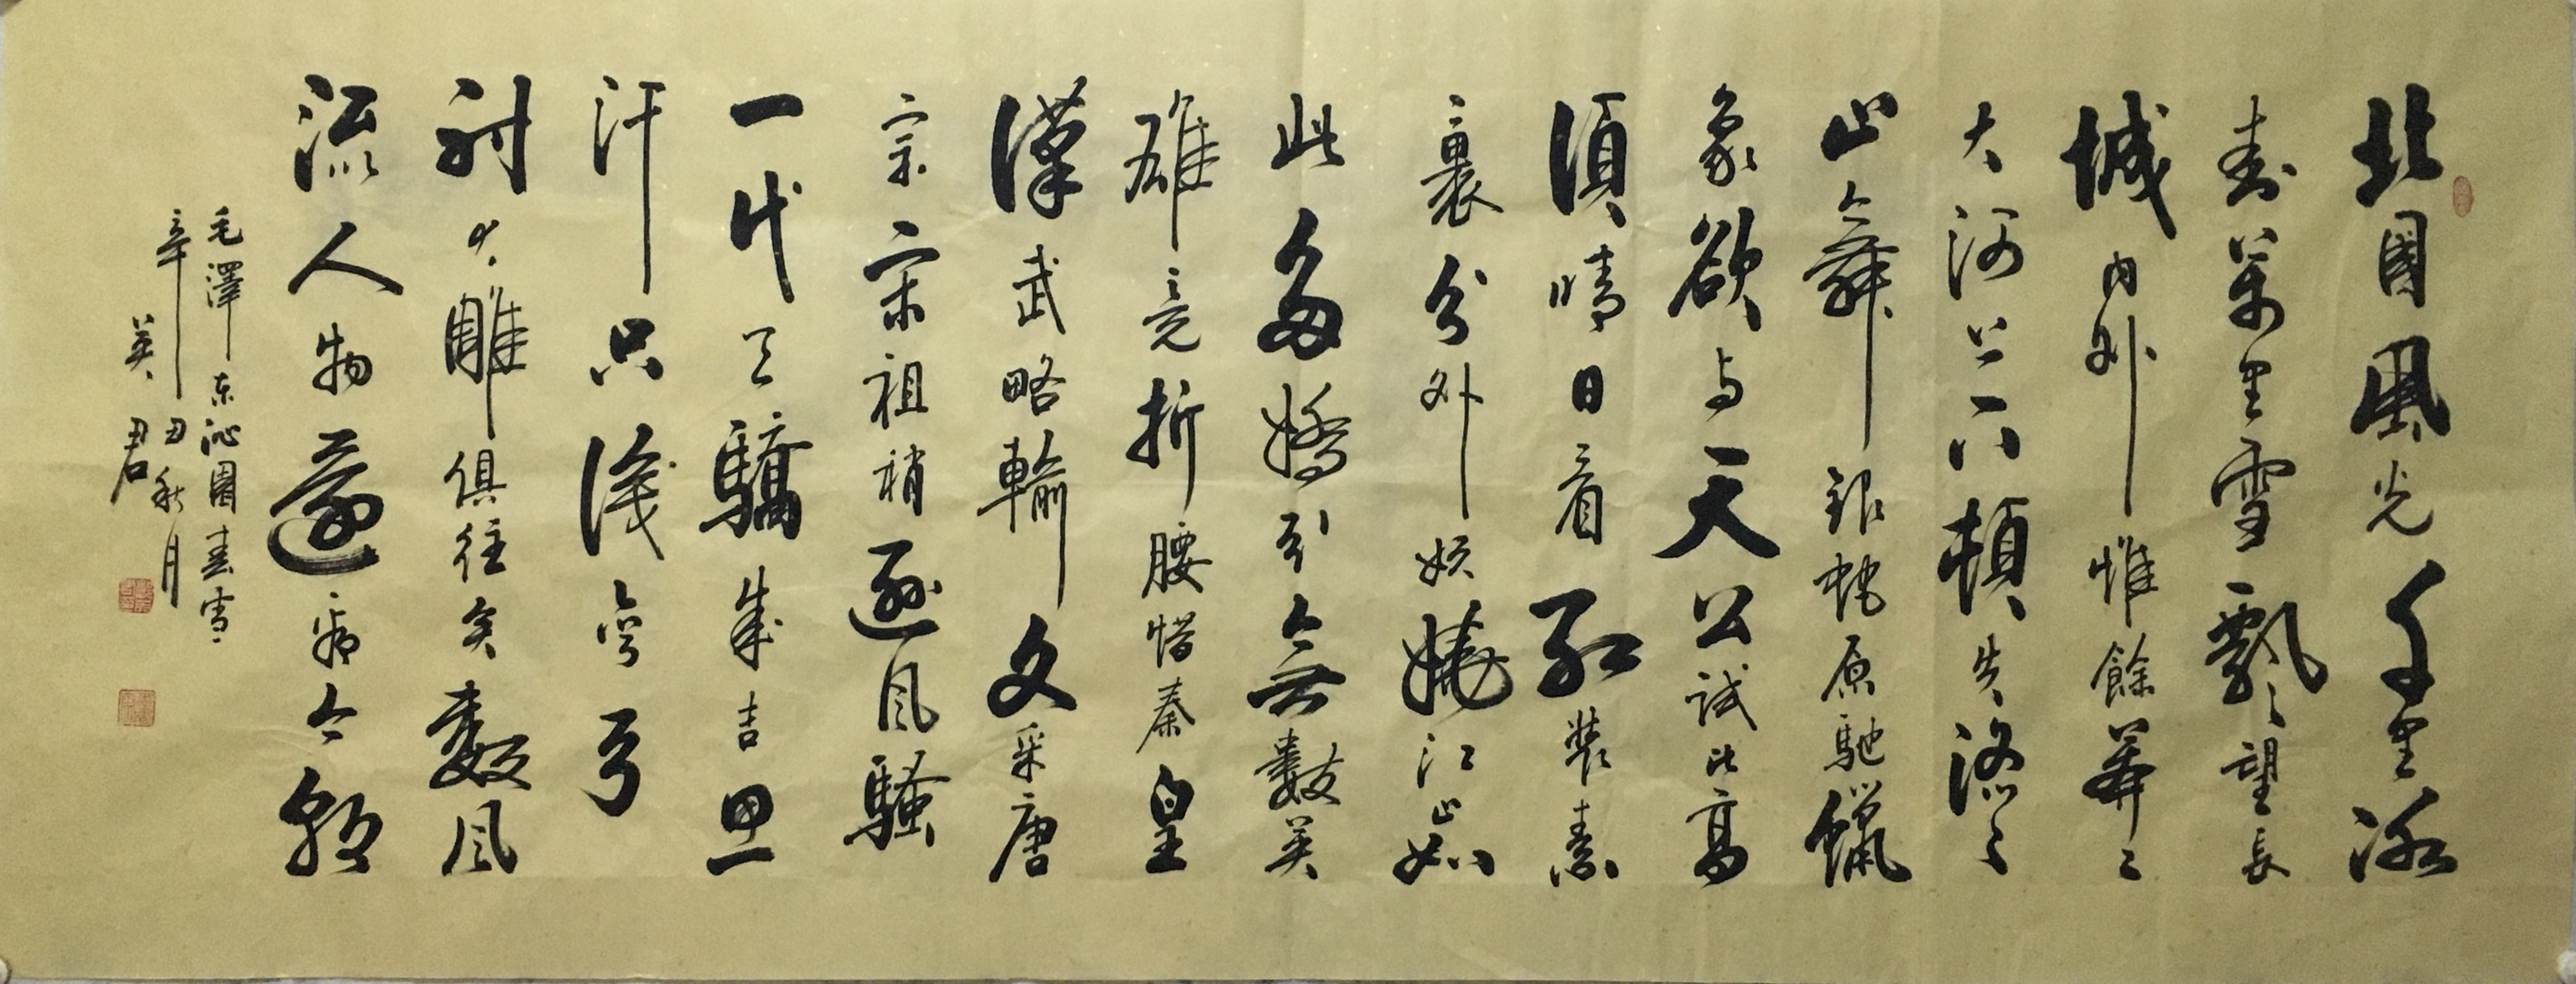 北國風光千里冰
封萬里雪飄飄望長
城內外惟餘莽〻
大河上下頓失滔〻
山舞銀蛇原馳蠟
象欲与天公試比高
須晴日看紅裝素
裹分外妖嬈江山如
此多嬌引無數英
雄竞折腰惜秦皇
漢武略輸文采唐
宗宋祖稍遜風騷
一代天驕成吉思
汗只識彎弓
射大雕俱往矣數風
流人物還看今朝
毛澤东沁園春雪
辛丑秋月
英君